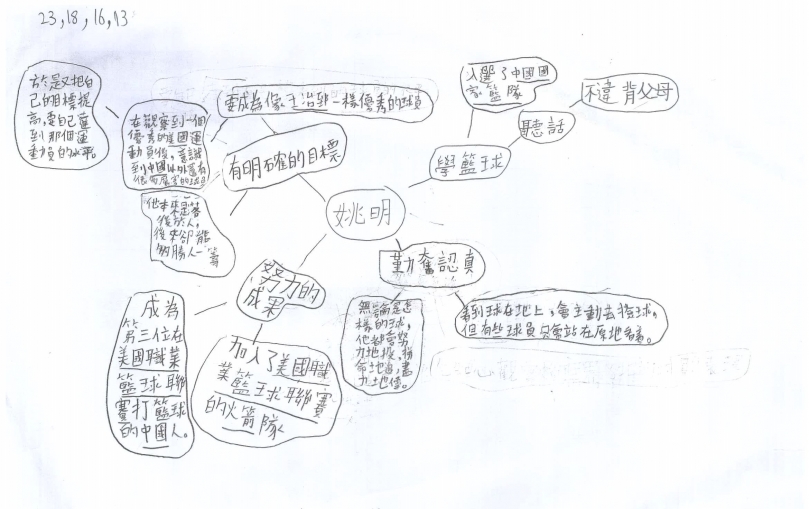 23,18,16,13
於是又把自
己的目標提
高,要自己達
到那個運
動員的水平。
要成為像王治郅一樣優秀的球員
在觀察到一個
優秀的美國運
動員後,意識
到中國以外還有
很多厲害的球員
有明確的目標
他本來是落
後於人,
後來卻能
夠勝人一籌
姚明
入選了中國國
家籃隊
不違背父母
聽話
學籃球
勤奮認真
無論是怎
樣的球,
他都會努
力地投,拚
命地追,盡
力地值。
看到球在地上,會主動去撿球。
但有些球員只常站在原地看着。
努力的
成果
成為
第三位在
美國職業
籃球聯
賽打籃球
的中國人。
加入了美國職
業籃球聯賽
的火箭隊